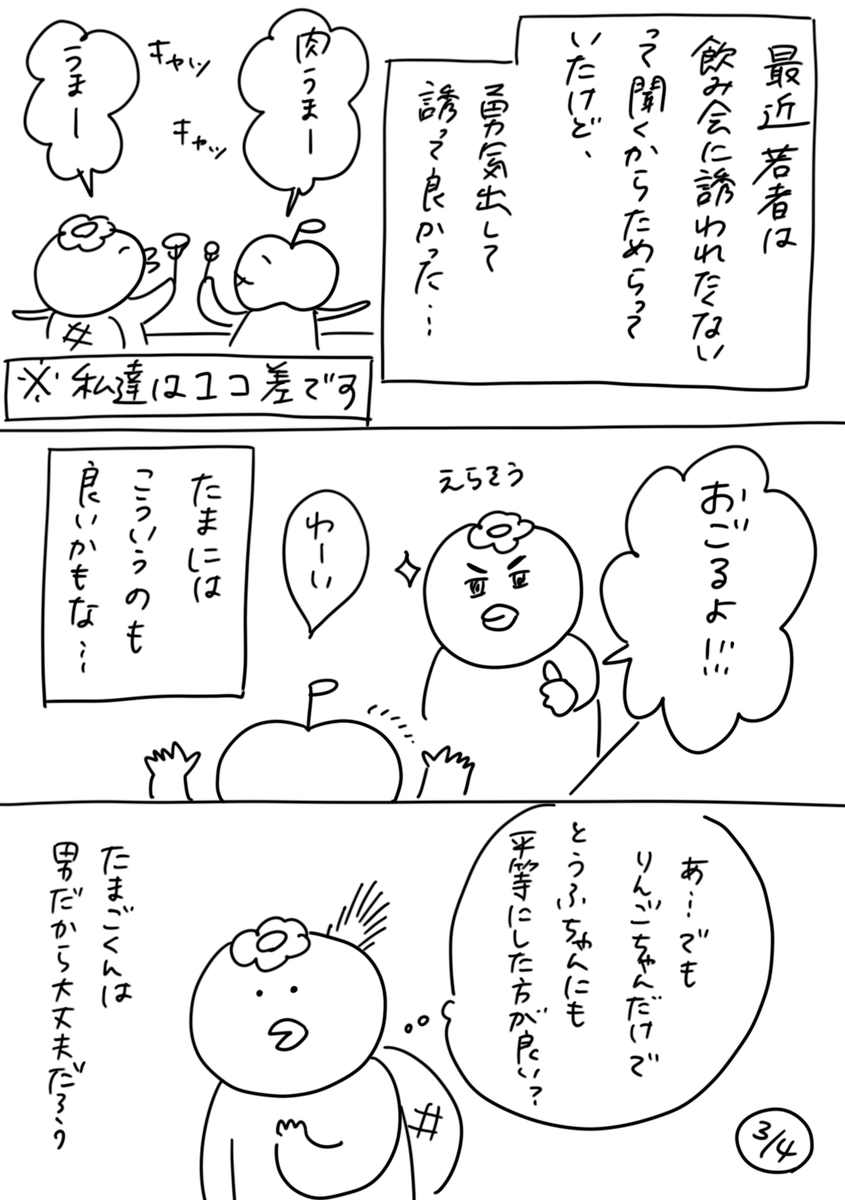 最近若者は
飲み会に誘われたくない
って聞くからためらって
いたけど、
勇気出して
誘って良かった…
肉うまー
キャッ
キャッ
うまー
※私達は1コ差です
おごるよ!!!
えらそう
わーい
たまには
こういうのも
良いかもな…
あ…でも
りんごちゃんだけで
とうふちゃんにも
平等にした方が良い?
たまごくんは
男だから大丈夫だろう
3/4